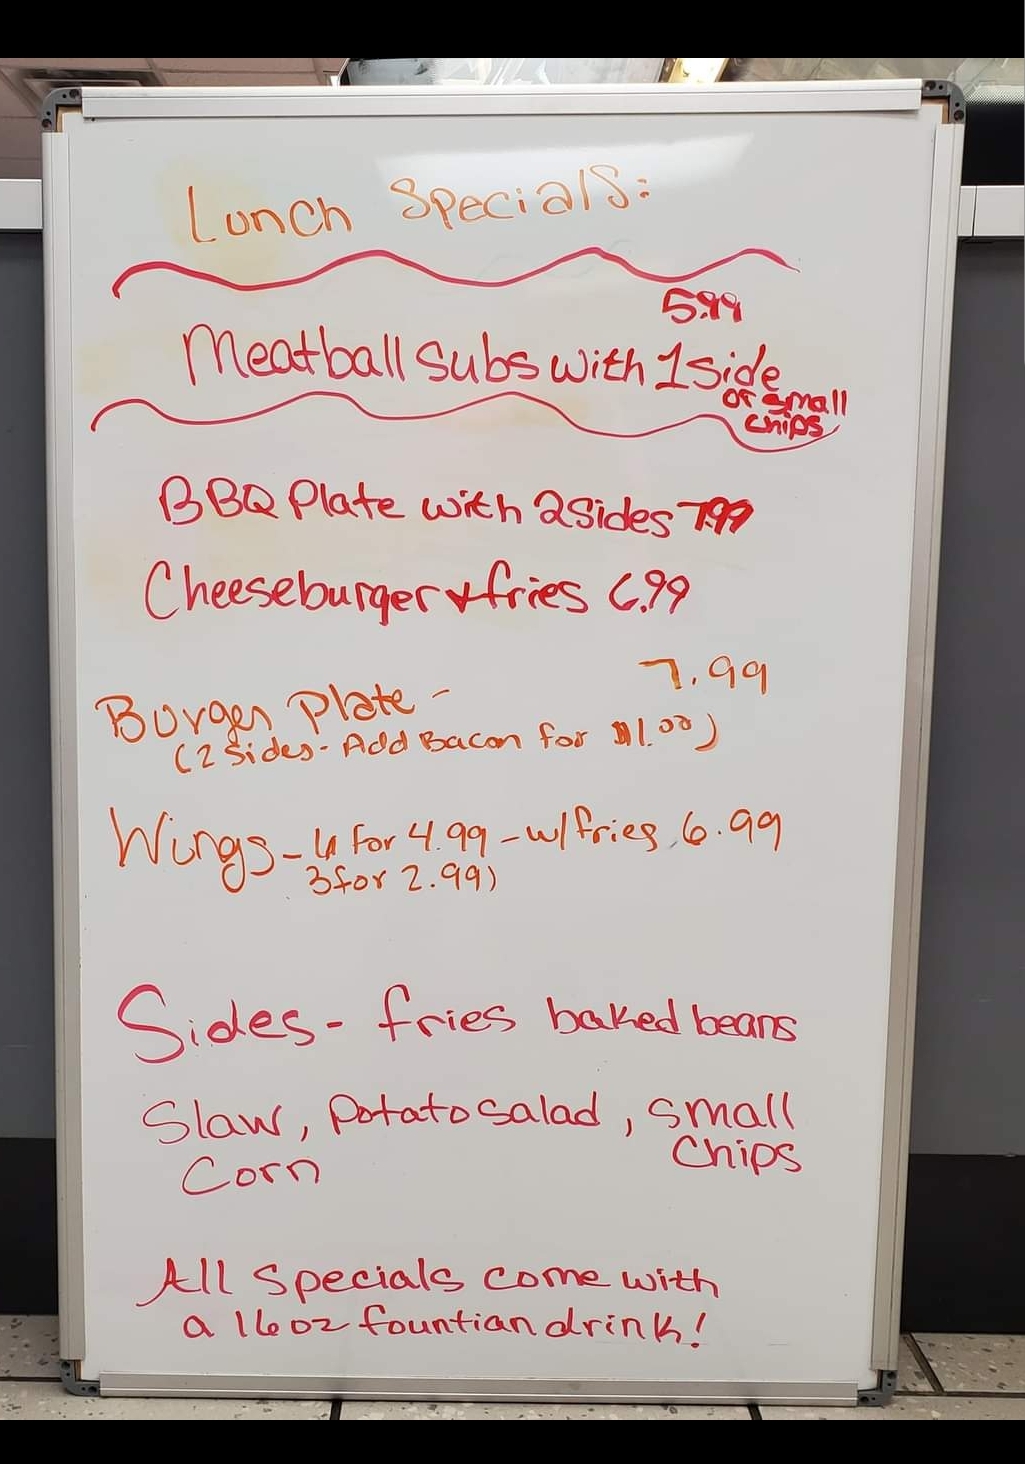 Lunch Specials:
5.99
Meatball subs with 1 side
or small
chips
BBQ Plate with 2 sides 7.99
Cheeseburger & fries 6.99
7.99
Burger Plate -
(2 sides - Add Bacon for $1.00)
Wings - for 4.99 - w/ fries 6.99
3 for 2.99)
Sides - fries baked beans
Slaw, Potato Salad, small
Chips
Corn
All specials come with
a 16 oz fountian drink!